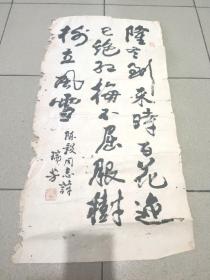 隆冬到来時百花迹
已绝红梅不屈服樹
树立風雪
陈毅同志詩
瑞芳